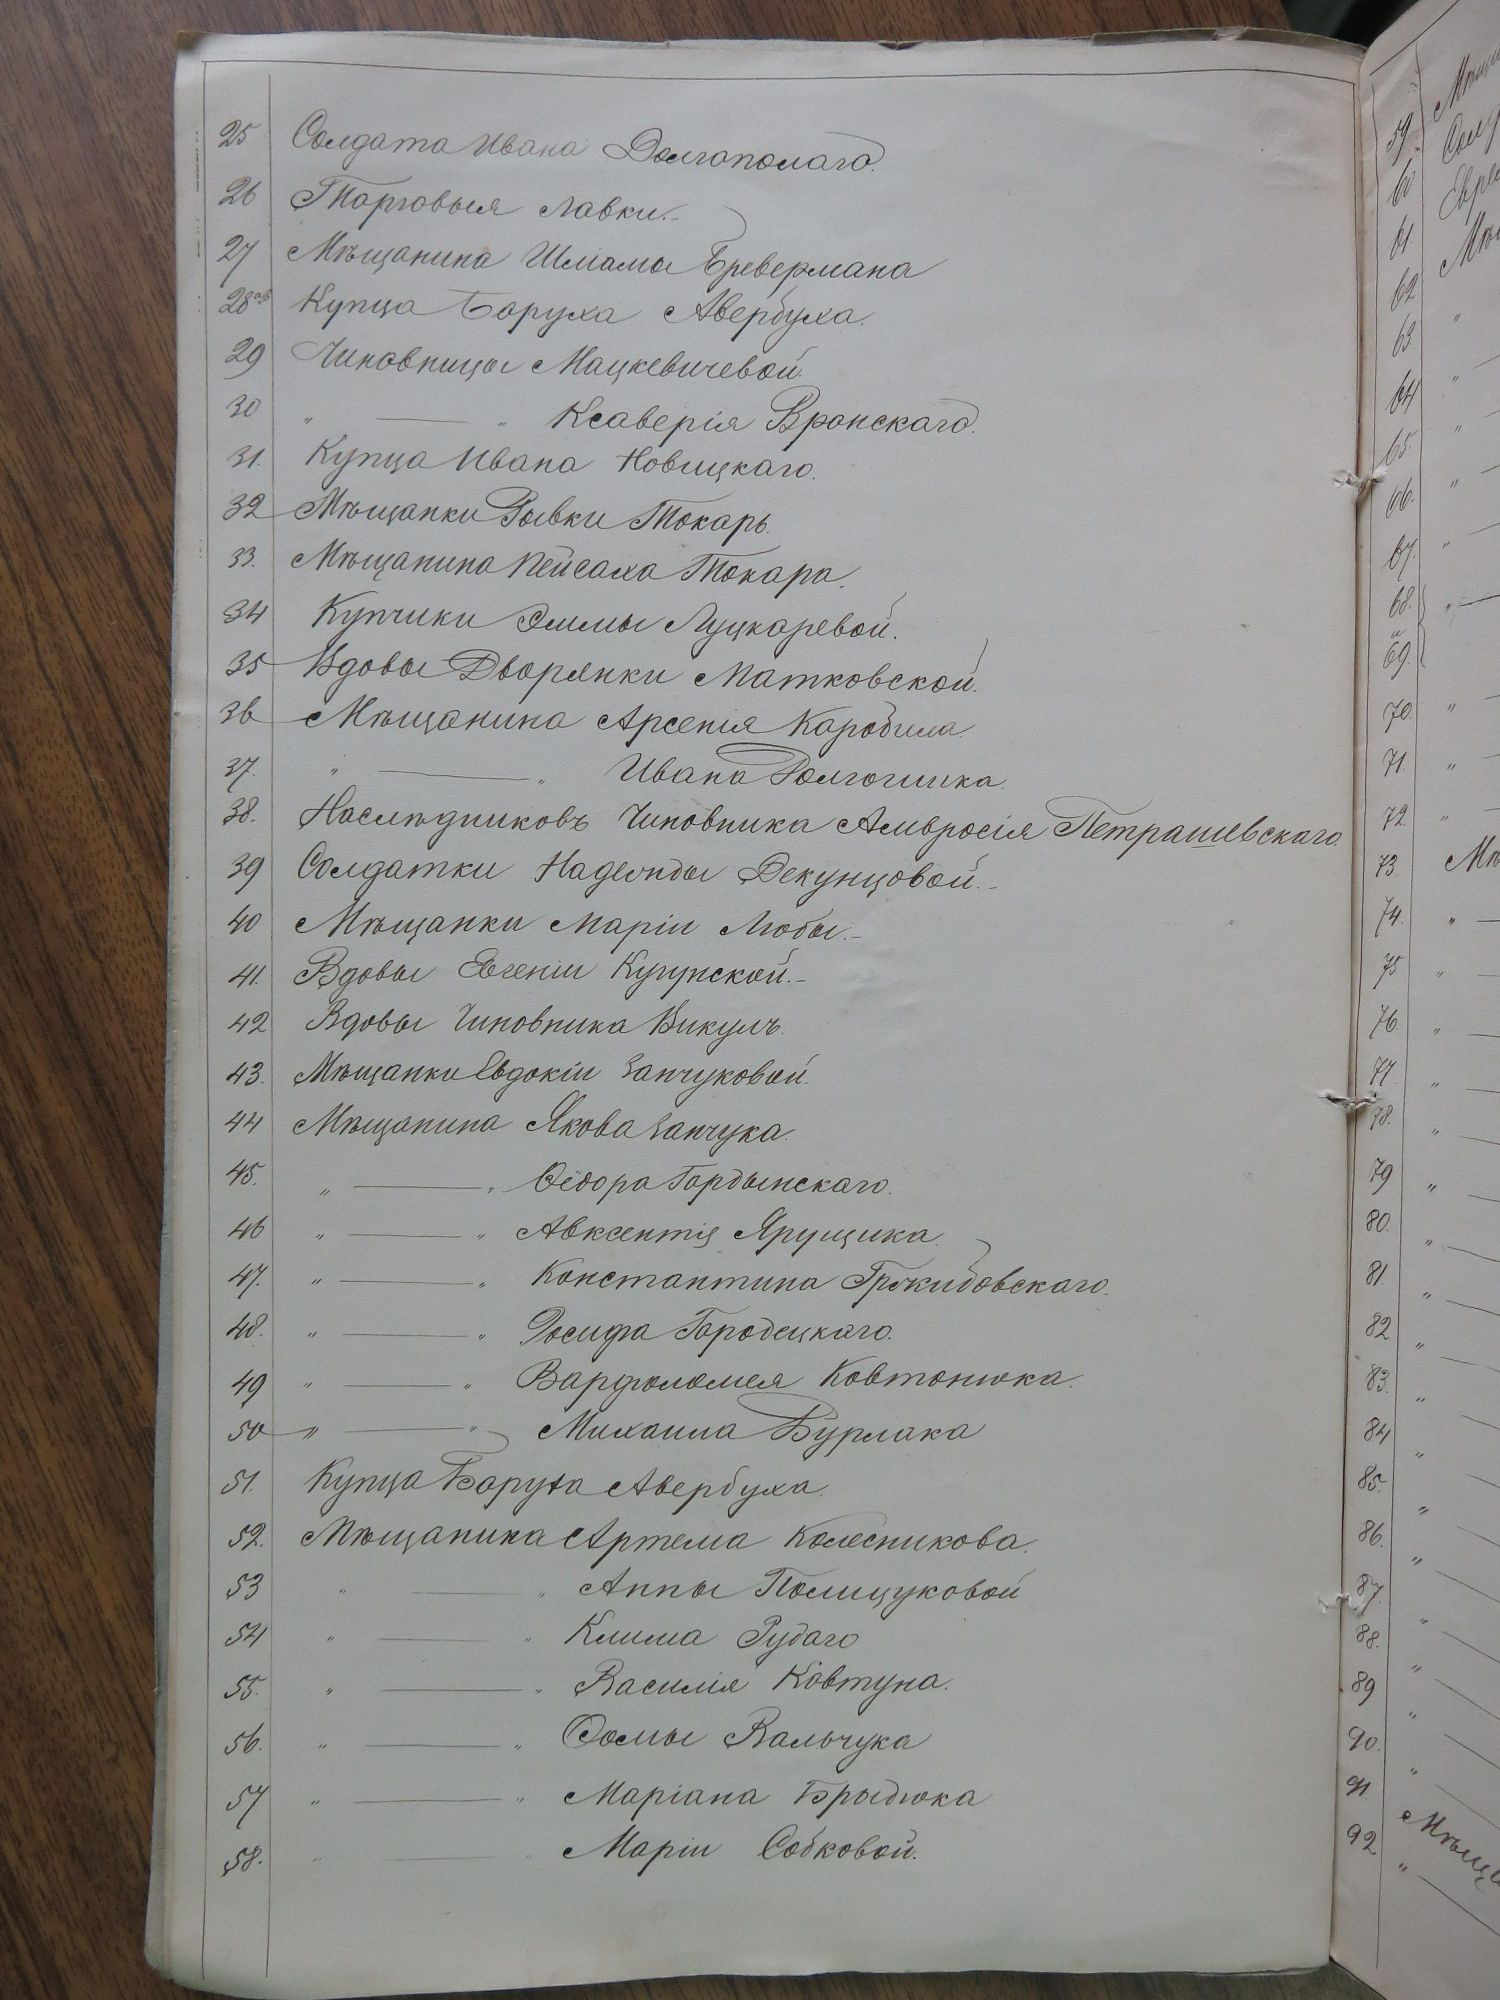 25 Солдата Ивана Долгополаго.
26 Торговыя лавки.-
27 Мѣщанина Шліомы Бревермана
28 Купца Боруха Авербуха.
29 Чиновницы Мацкевичевой.
30 " — " Ксаверія Вронскаго.
31. Купца Ивана Новицкаго.
32 Мѣщанки Рывки Токарь.
33. Мѣщанина Пейсаха Токара.
34 Купчихи Эммы Луцкаревой.
35 Вдовы Дворянки Матковской.
36 Мѣщанина Арсенія
37. " — " Ивана
38. Наслѣдниковъ Чиновника Амвросія Петрашевскаго.
39 Солдатки Надежды Декунцовой.-
40 Мѣщанки Маріи Любы.-
41. Вдовы Евгеніи
42 Вдовы Чиновника Викулъ.
43. Мѣщанки Евдокіи Занчуковой.
44 Мѣщанина Якова Занчука.
45. " — " Ѳедора Гордынскаго.
46 " — " Авксентія Ярущика.
47. " — " Константина
48. " — " Іосифа Городецкаго.
49 " — " Варфоломея Ковтонюка.
50 " — " Михаила Бурлака
51. Купца Боруха Авербуха.
52. Мѣщанина Артема Колесникова.
53 " — " Анны Полищуковой
54 " — " Клима Рудаго
55. " — " Василія Ковтуна.
56. " — " Ѳомы Вальчука
57 " — " Маріана Брыдюка
58. " — " Маріи Собковой.
59.
60
61.
62
63
64
65.
66.
67.
68.
и
69.
70.
71.
72.
73
74.
75
76.
77.
78.
79
80.
81.
82
83.
84
85.
86.
87.
88.
89
90.
91
92